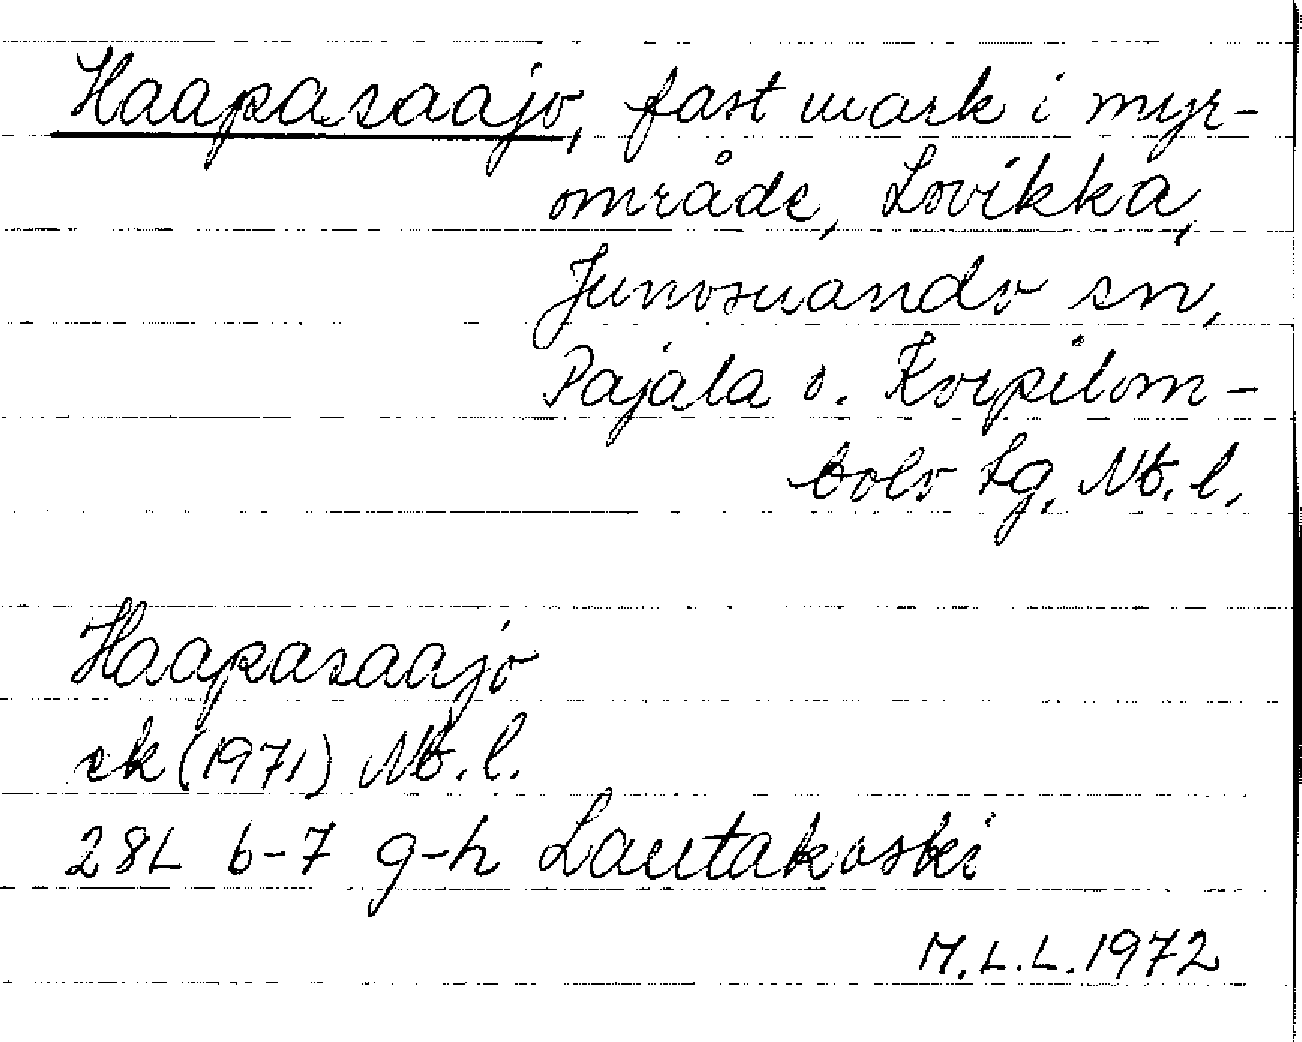 Haapasaajo, fast mark i myr-
område, Lovikka,
Junosuando sn,
Pajala o. Korpilom-
bolo tg. Nb. l.
Haapasaajo
ek (1971) Nb. l.
28L 6-7 g-h Lautakoski
M.L.L. 1972